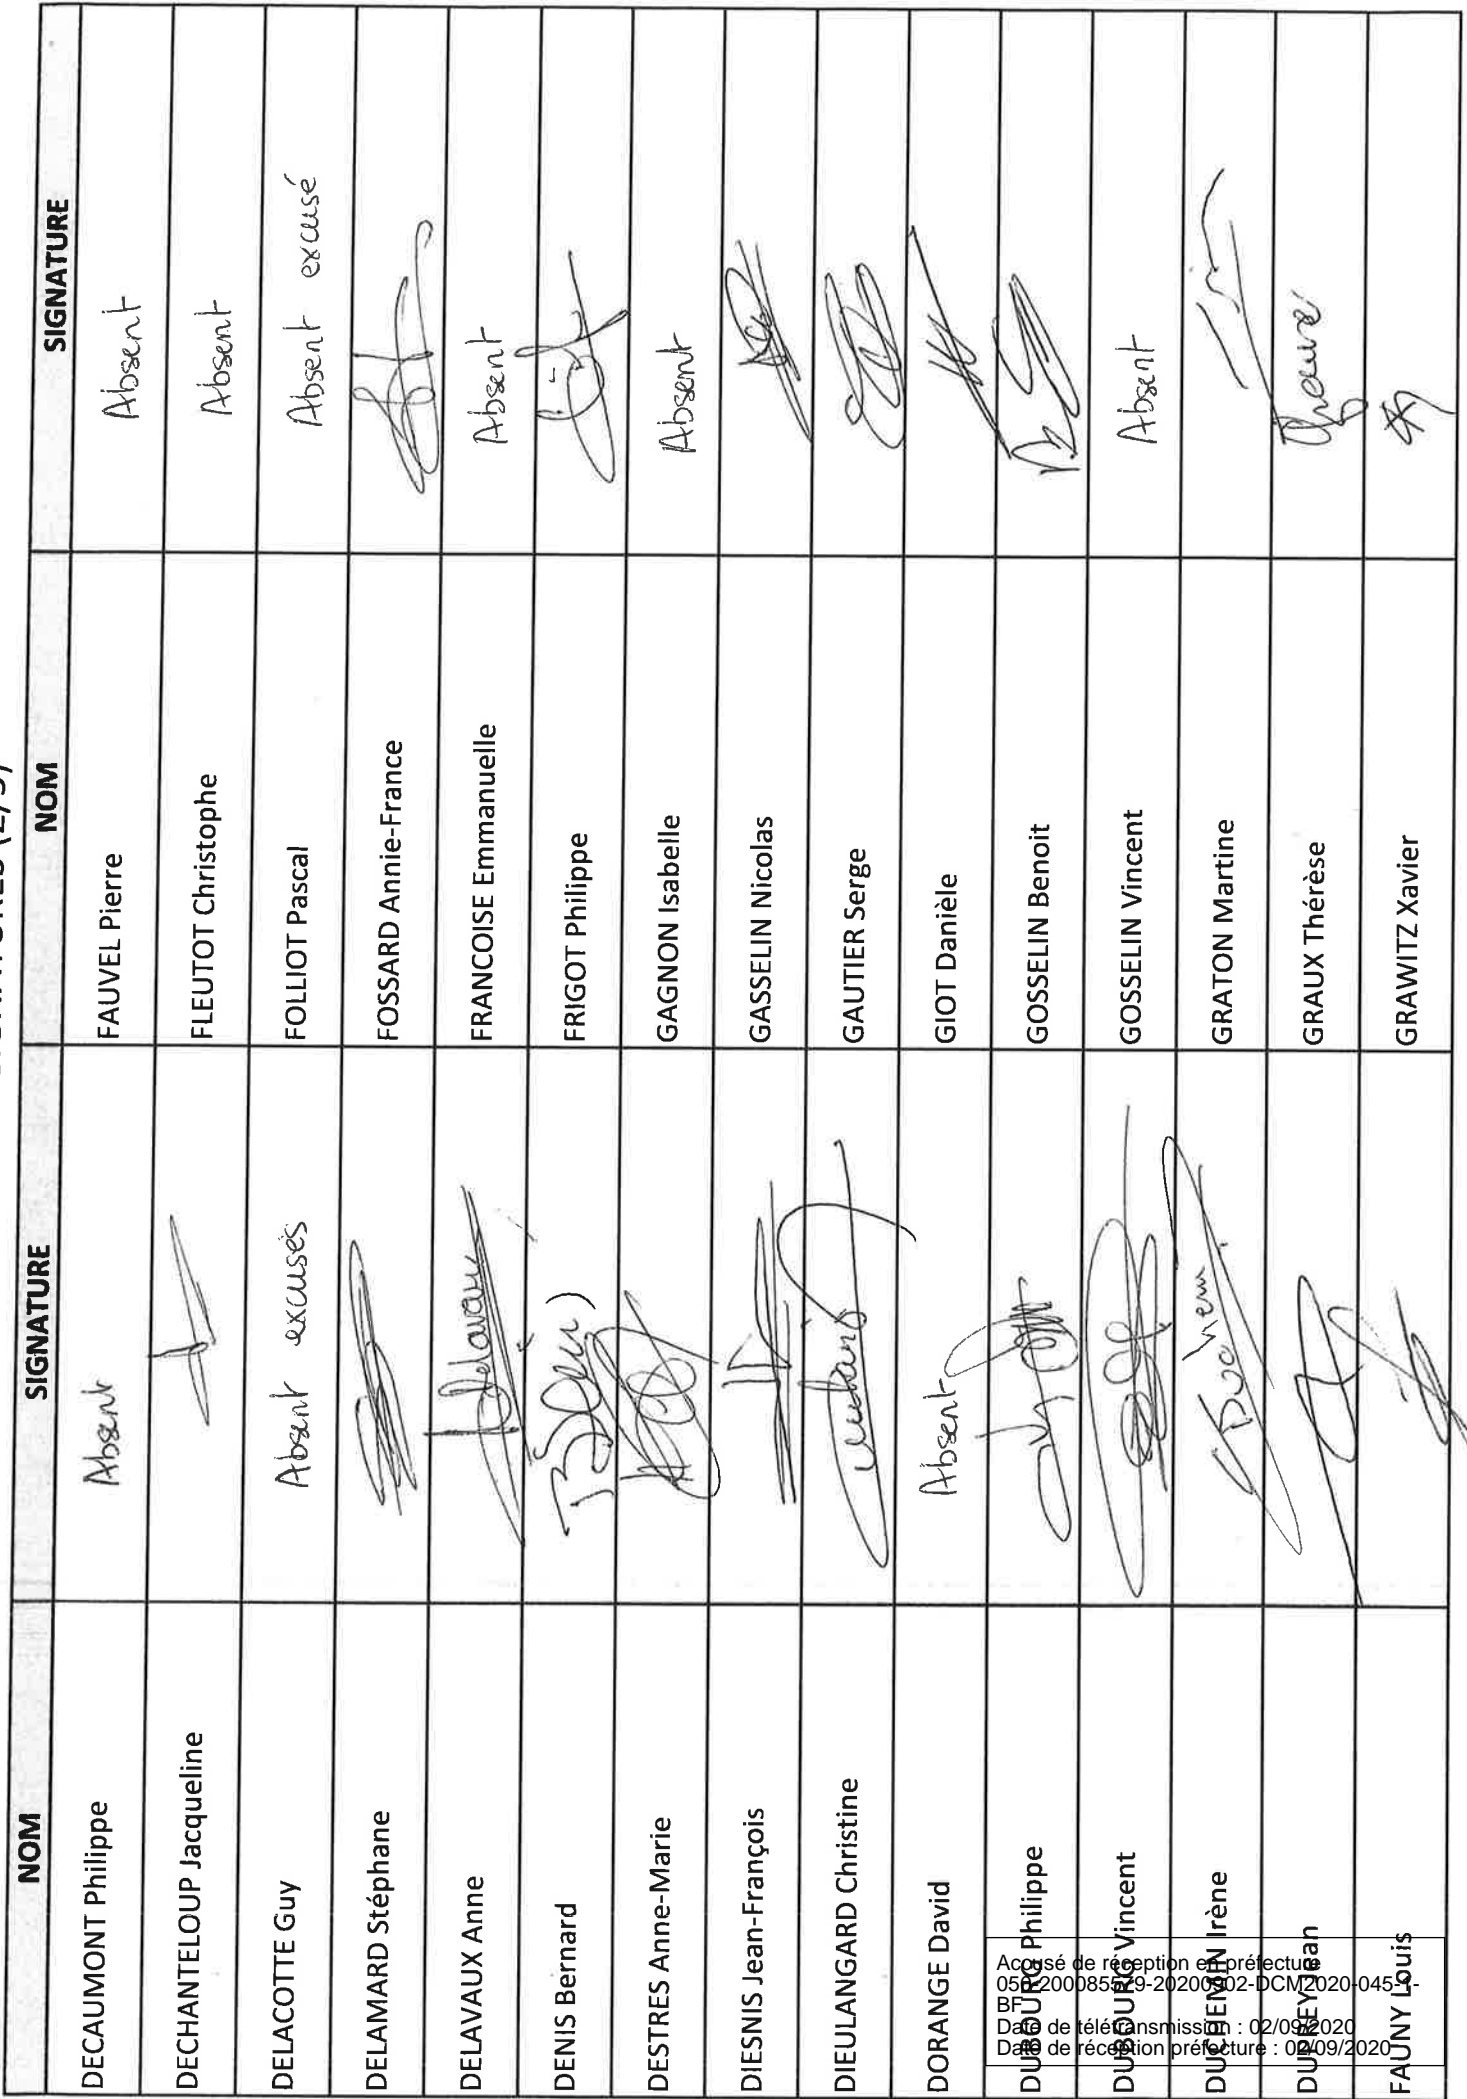 NOM SIGNATURE NOM SIGNATURE
DECAUMONT Philippe Absent FAUVEL Pierre Absent
DECHANTELOUP Jacqueline FLEUTOT Christophe Absent
DELACOTTE Guy Absent excusés FOLLIOT Pascal Absent excusé
DELAMARD Stéphane FOSSARD Annie-France
DELAVAUX Anne Delavaux FRANCOISE Emmanuelle Absent
DENIS Bernard FRIGOT Philippe
DESTRES Anne-Marie GAGNON Isabelle Absent
DIESNIS Jean-François GASSELIN Nicolas
DIEULANGARD Christine GAUTIER Serge
DORANGE David Absent GIOT Danièle
DUBOURG Philippe GOSSELIN Benoit
DUBOURG Vincent GOSSELIN Vincent Absent
DUCHEMIN Irène GRATON Martine
DUPREY Jean GRAUX Thérèse
FAUNY Louis GRAWITZ Xavier
Accusé de réception en préfecture
BF
Date de télétransmission : 02/09/2020
Date de réception préfecture : 02/09/2020